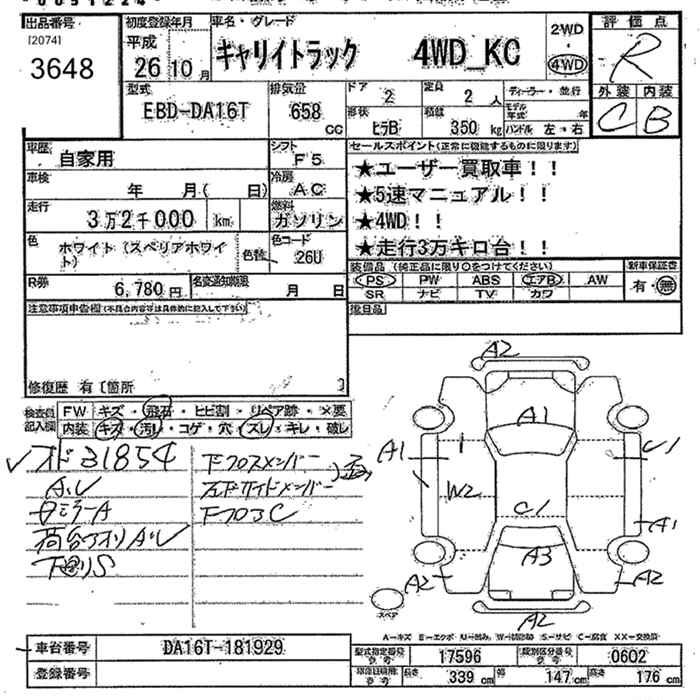 出品番号 初度登録年月 車名・グレード 2WD 評価点
[2074] 平成 ・
3648 26 10月 キャリイトラック 4WD_KC 4WD R
型式 排気量 ドア 定員 ディーラー・並行 外装 内装
EBD-DA16T 658 2 2人 モデル年式 年 C B
cc 形状 積載
ヒラB 350kg ハンドル 左・右
車歴 シフト セールスポイント(正常に機能するものに限ります)
自家用 F5 ★ユーザー買取車!!
車検 冷房 ★5速マニュアル!!
年 月( 日) AC
走行 燃料 ★4WD!!
3万2千000 km ガソリン ★走行3万キロ台!!
色 色替 色コード 装備品(純正品に限り○をつけてください) 新車保証書
ホワイト(スペリアホワイト) 26U PS PW ABS エアB AW 有・無
SR ナビ TV カワ
R券 名変通知期限 後日品
6,780円 月 日
注意事項申告欄(不具合内容等は具体的に記入して下さい)
修復歴 有〔箇所 〕
検査員記入欄 FW キズ・飛石・ヒビ割・リペア跡・×要
内装 キズ・汚れ・コゲ・穴・スレ・キレ・破レ
31854
A
下フロスメンバー
サイドメンバー
下フロC
荷台アオリ
下回りS
A2
A1
A1 1 C1
W2
C1
A1
A3
A2 A2
スペア
A2
A-キズ E-エクボ U-凹み W-補修跡 S-サビ C-腐食 XX-交換済
車台番号 DA16T-181929 型式指定番号 17596 類別区分番号 0602
登録番号 長さ 339cm 幅 147cm 高さ 176cm